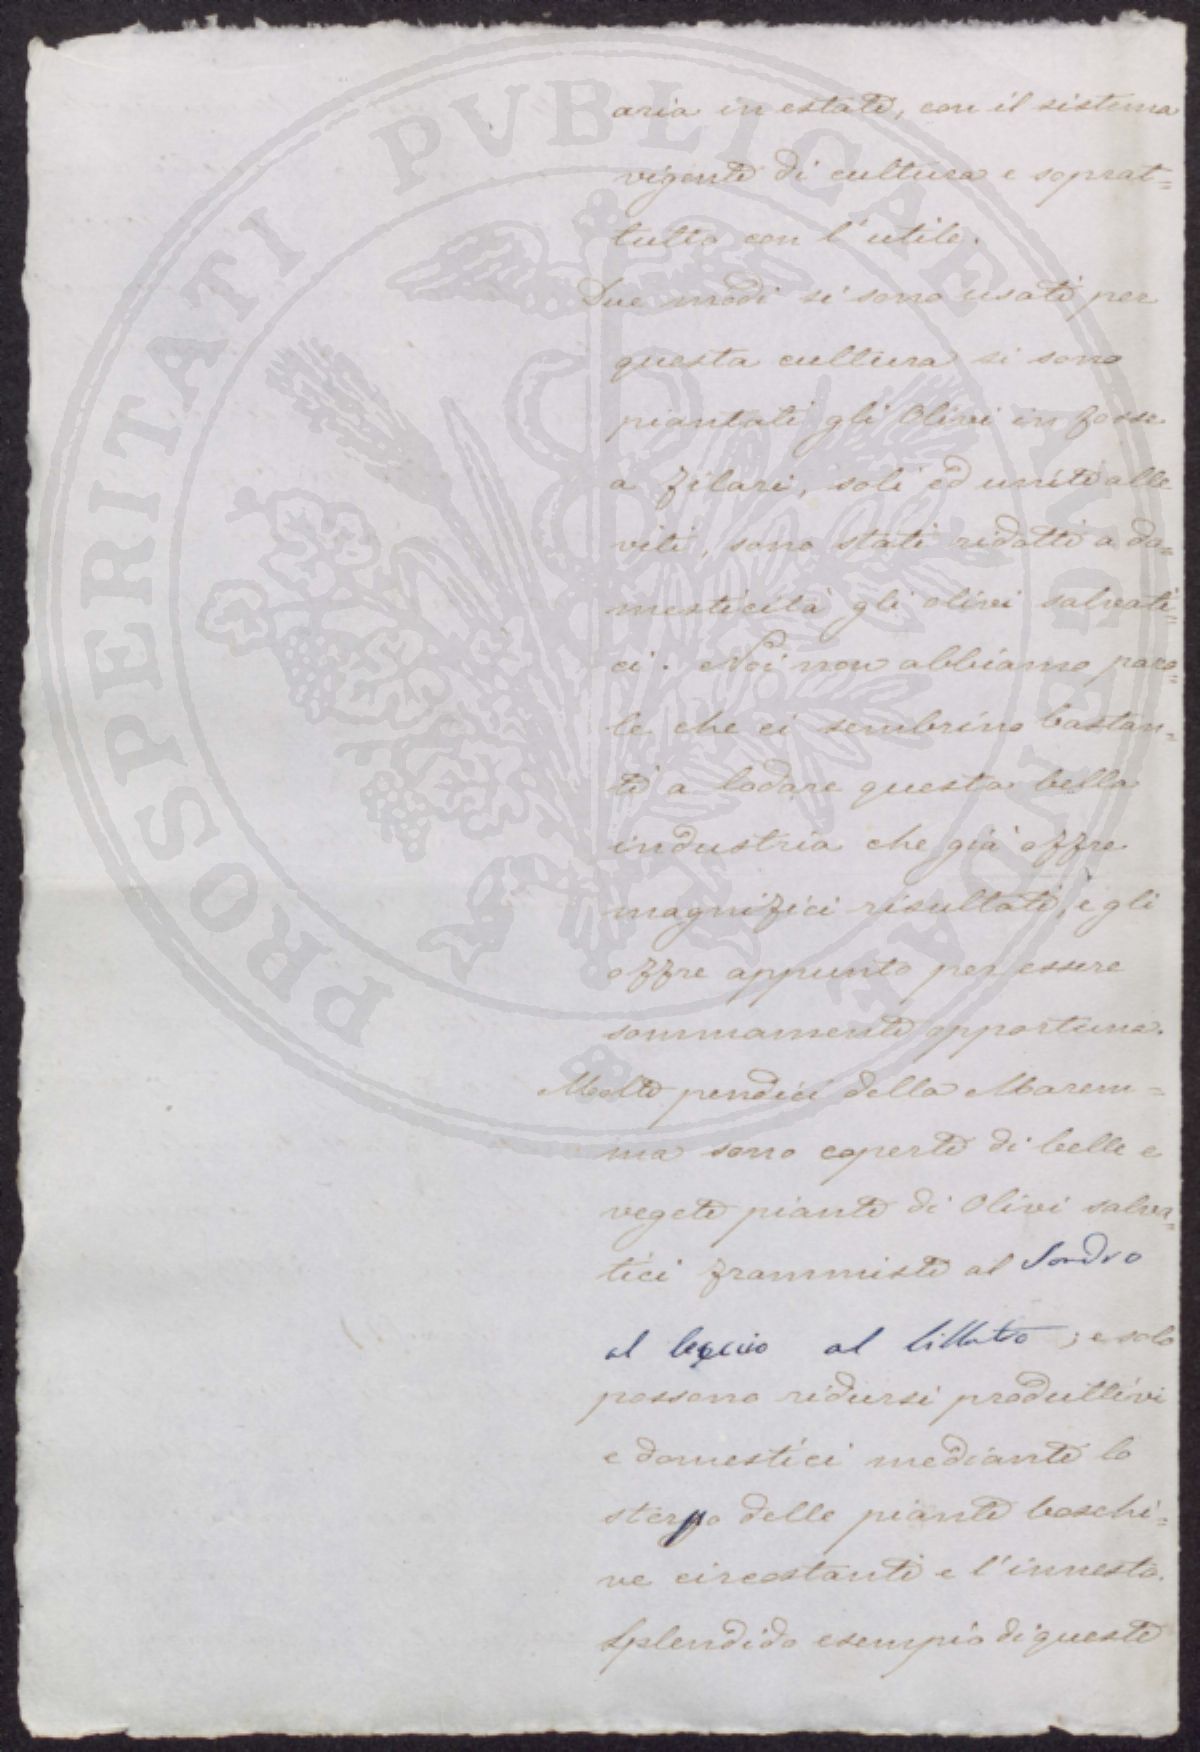 aria in estate, con il sistema
vigente di cultura e soprat=
tutto con l'utile.
Due modi si sono usati per
questa cultura si sono
piantati gli Olivi in fosse
a filari, soli ed uniti alle
viti, sono stati ridotti a do=
mesticità gli olivi salvati=
ci. Noi non abbiamo paro=
le che ci sembrino bastan=
ti a lodare questa bella
industria che già offre
magnifici risultati, e gli
offre appunto per essere
sommamente opportuna.
Molte pendici della Marem=
ma sono coperte di belle e
vegete piante di Olivi salva=
tici frammiste al Sondro
al leccio al lillatro; e solo
possono ridursi produttivi
e domestici mediante lo
sterpo delle piante boschi=
ve circostanti e l'innesto.
Splendido esempio di queste
PROSPERITATI PVBLICAE AVGENDAE